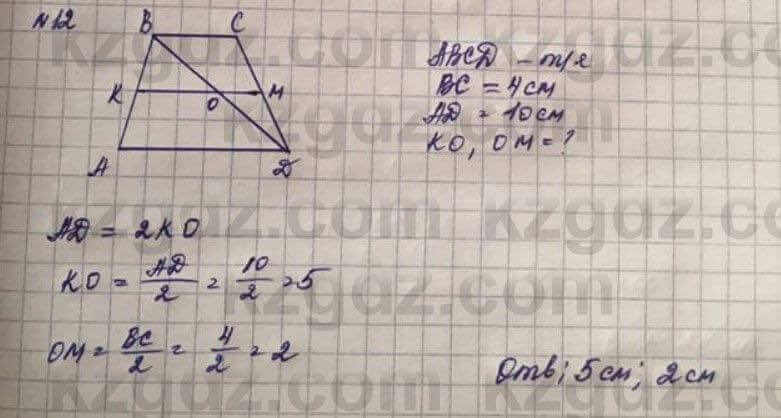 №12
B C
ABCD - т/я
BC = 4см
K O M
AD = 10см
KO, OM = ?
A D
AD = 2KO
KO = AD/2 = 10/2 = 5
OM = BC/2 = 4/2 = 2
Отв; 5см; 2см
kzgdz.com kzgdz.com
kzgdz.com
kzgdz.com kzgdz.com
kzgdz.com
kzgdz.com kzgdz.com